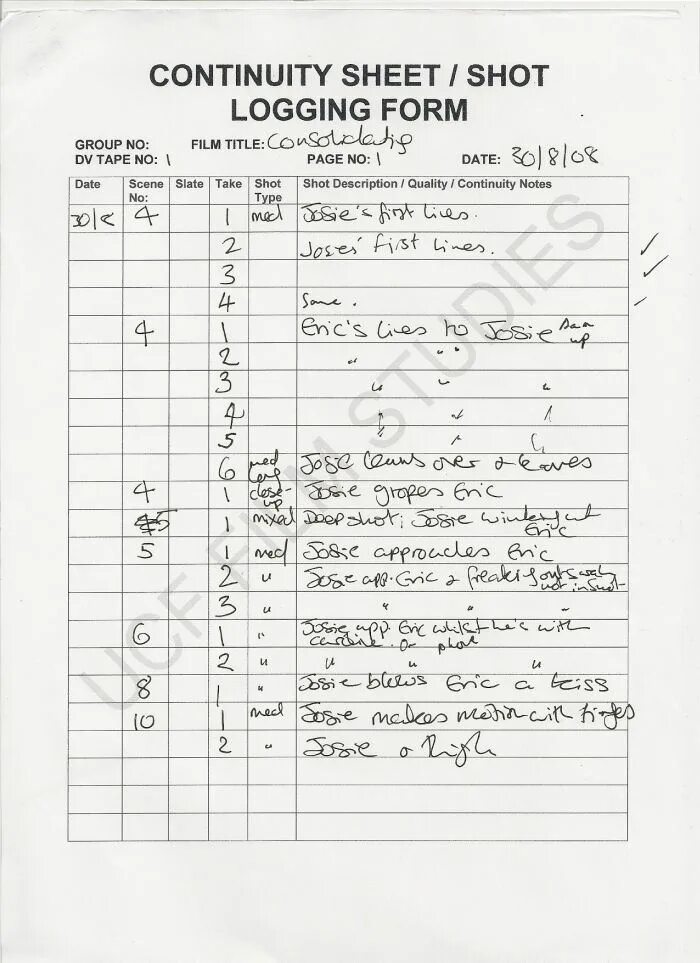 CONTINUITY SHEET / SHOT
LOGGING FORM
GROUP NO: FILM TITLE: Consolidating
DV TAPE NO: 1 PAGE NO: 1 DATE: 30/8/08
Date Scene No: Slate Take Shot Type Shot Description / Quality / Continuity Notes
30/8 4 1 med Josie's first lines.
2 first lines.
3
4 Same.
4 1 Eric's lines to Josie up
2 " "
3 " " "
4 " "
5 " "
6 med long leans over & leaves
4 1 close-up Josie gropes Eric
5 1 mixed Deep shot; Josie winking at Eric
5 1 med Josie approaches Eric
2 " Josie app. Eric & not in shot
3 " " " "
6 1 " Josie app. Eric whilst he's with
caroline. on phone
2 " " " "
8 1 " Josie blows Eric a kiss
10 1 med Josie makes motion with
2 " Josie
UCF FILM STUDIES